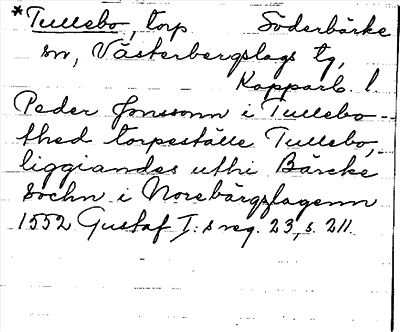 *Tullebo, torp Söderbärke
sn, Västerbergslags tg,
Kopparb. l
Peder Jonssonn i Tullebo -
thed torpeställe Tullebo,
liggiandes uthi Bärcke
Sochn i Norebärgzlagenn
1552 Gustaf I:s reg. 23, s. 211.